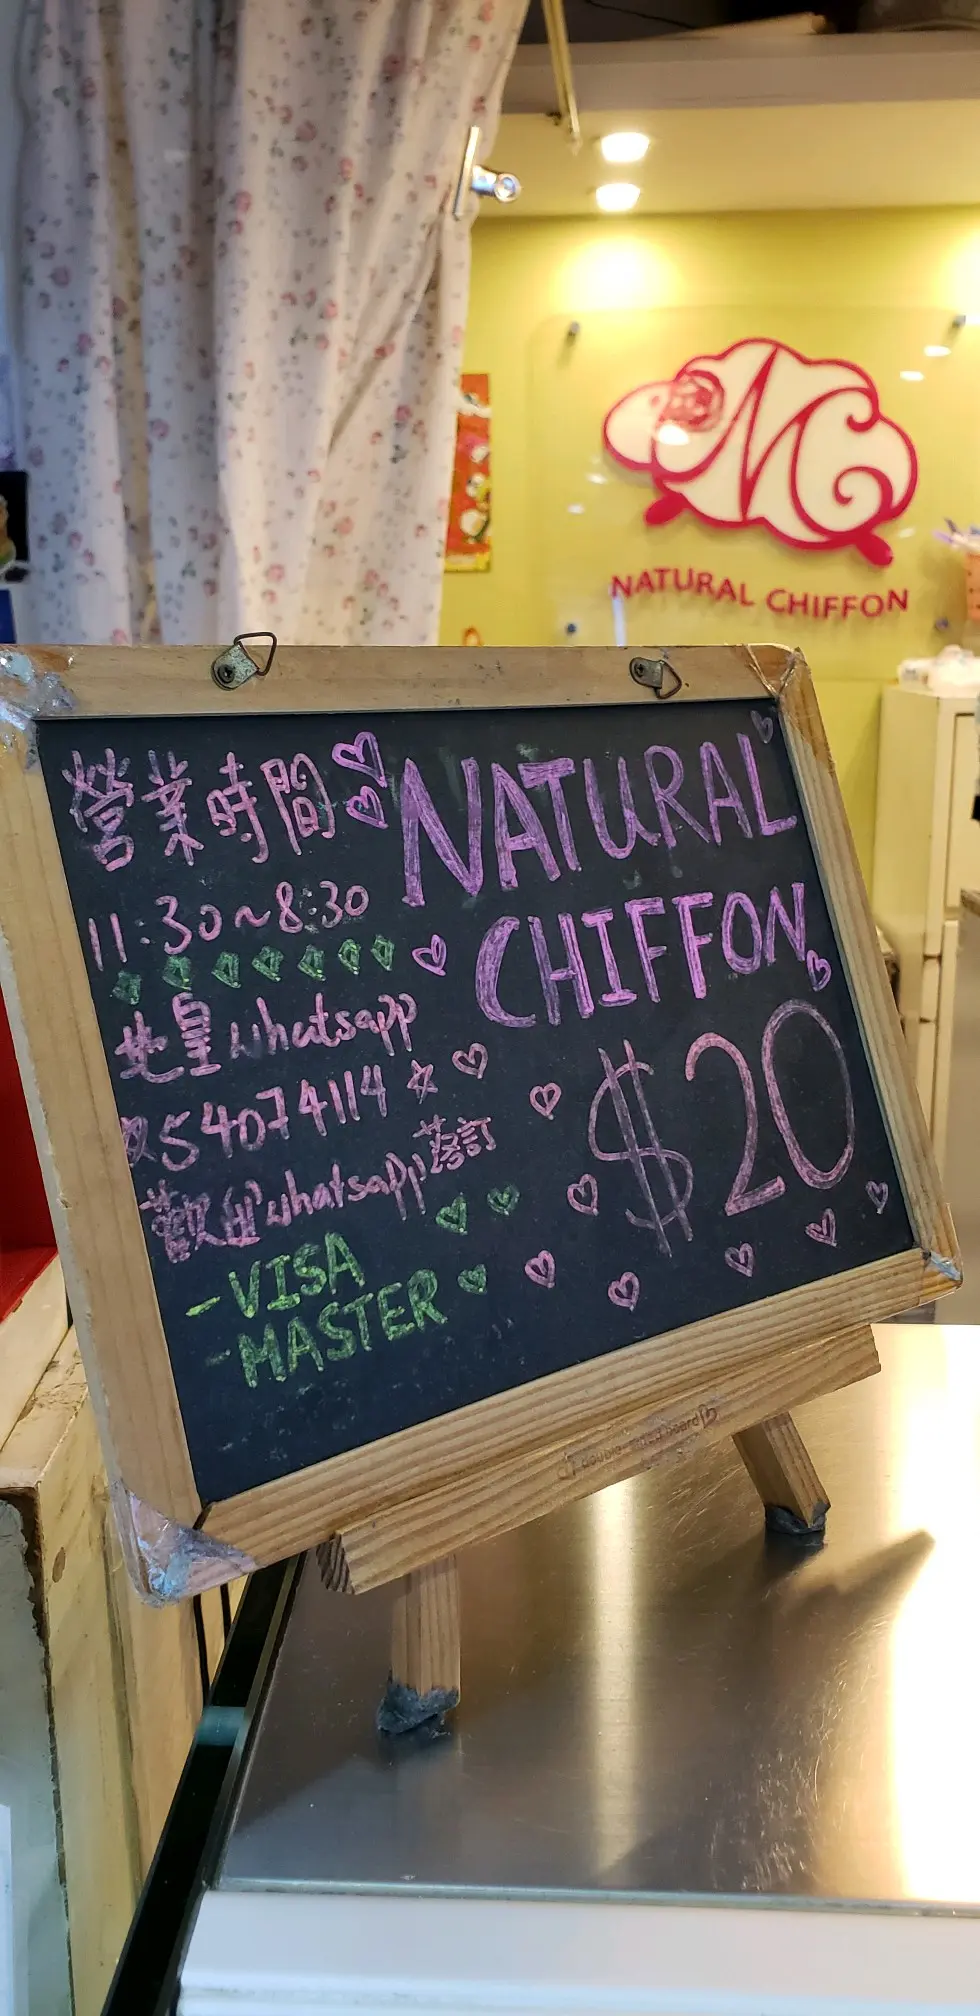 NATURAL CHIFFON
營業時間
11:30~8:30
地皇whatsapp
54074114
歡迎whatsapp落訂
-VISA
-MASTER
NATURAL
CHIFFON
$20
double-sided board